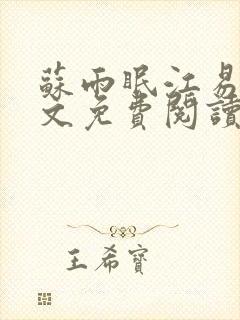 蘇雨眠江易
文免費閱讀
王希寶